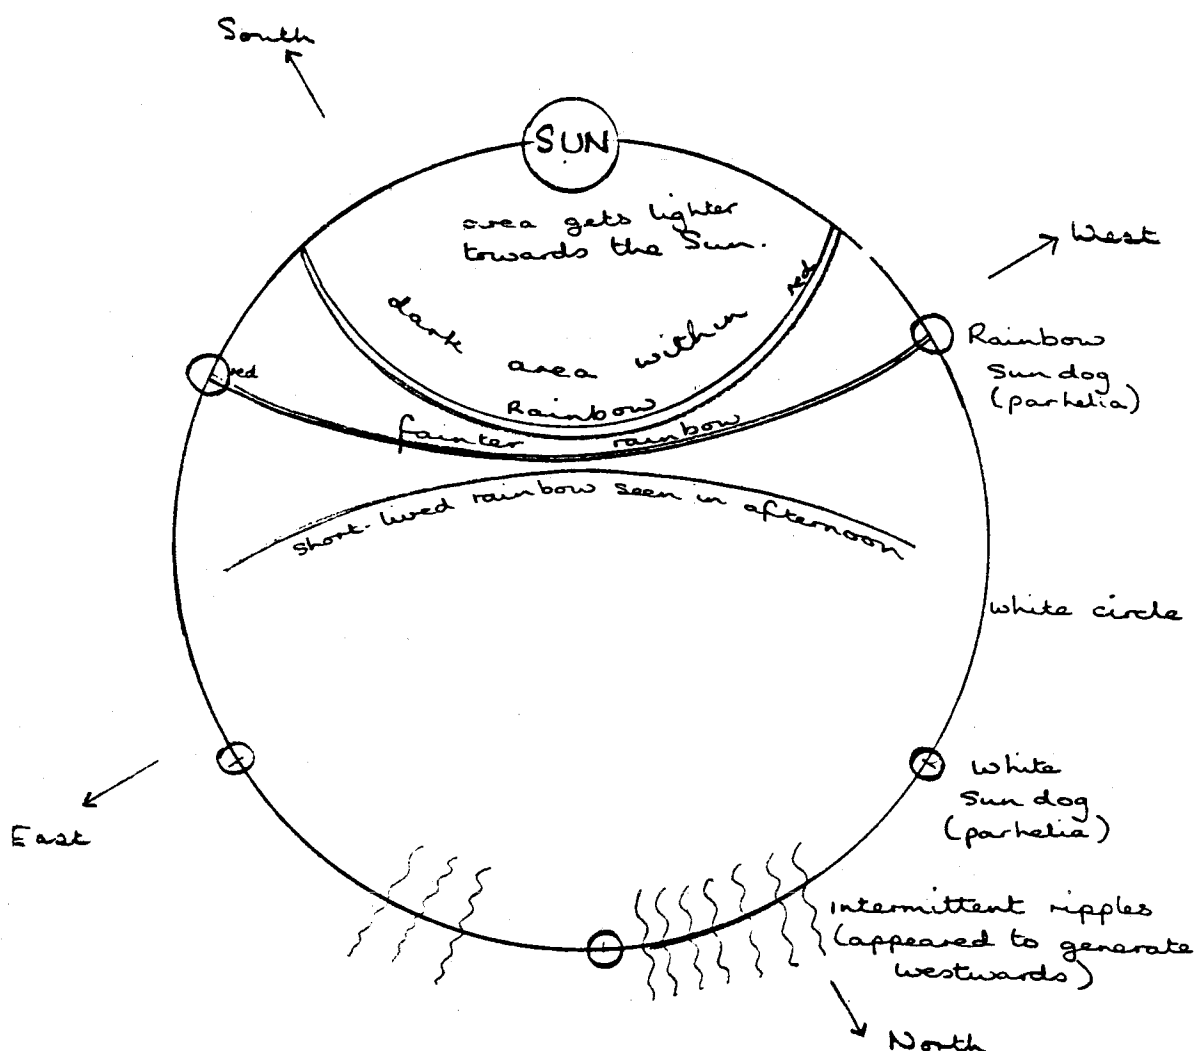 South
SUN
area gets lighter
towards the Sun.
West
dark area within
red
Rainbow
Sun dog
(parhelia)
red
Rainbow
fainter rainbow
short-lived rainbow seen in afternoon
white circle
White
Sun dog
(parhelia)
East
Intermittent ripples
(appeared to generate
westwards)
North